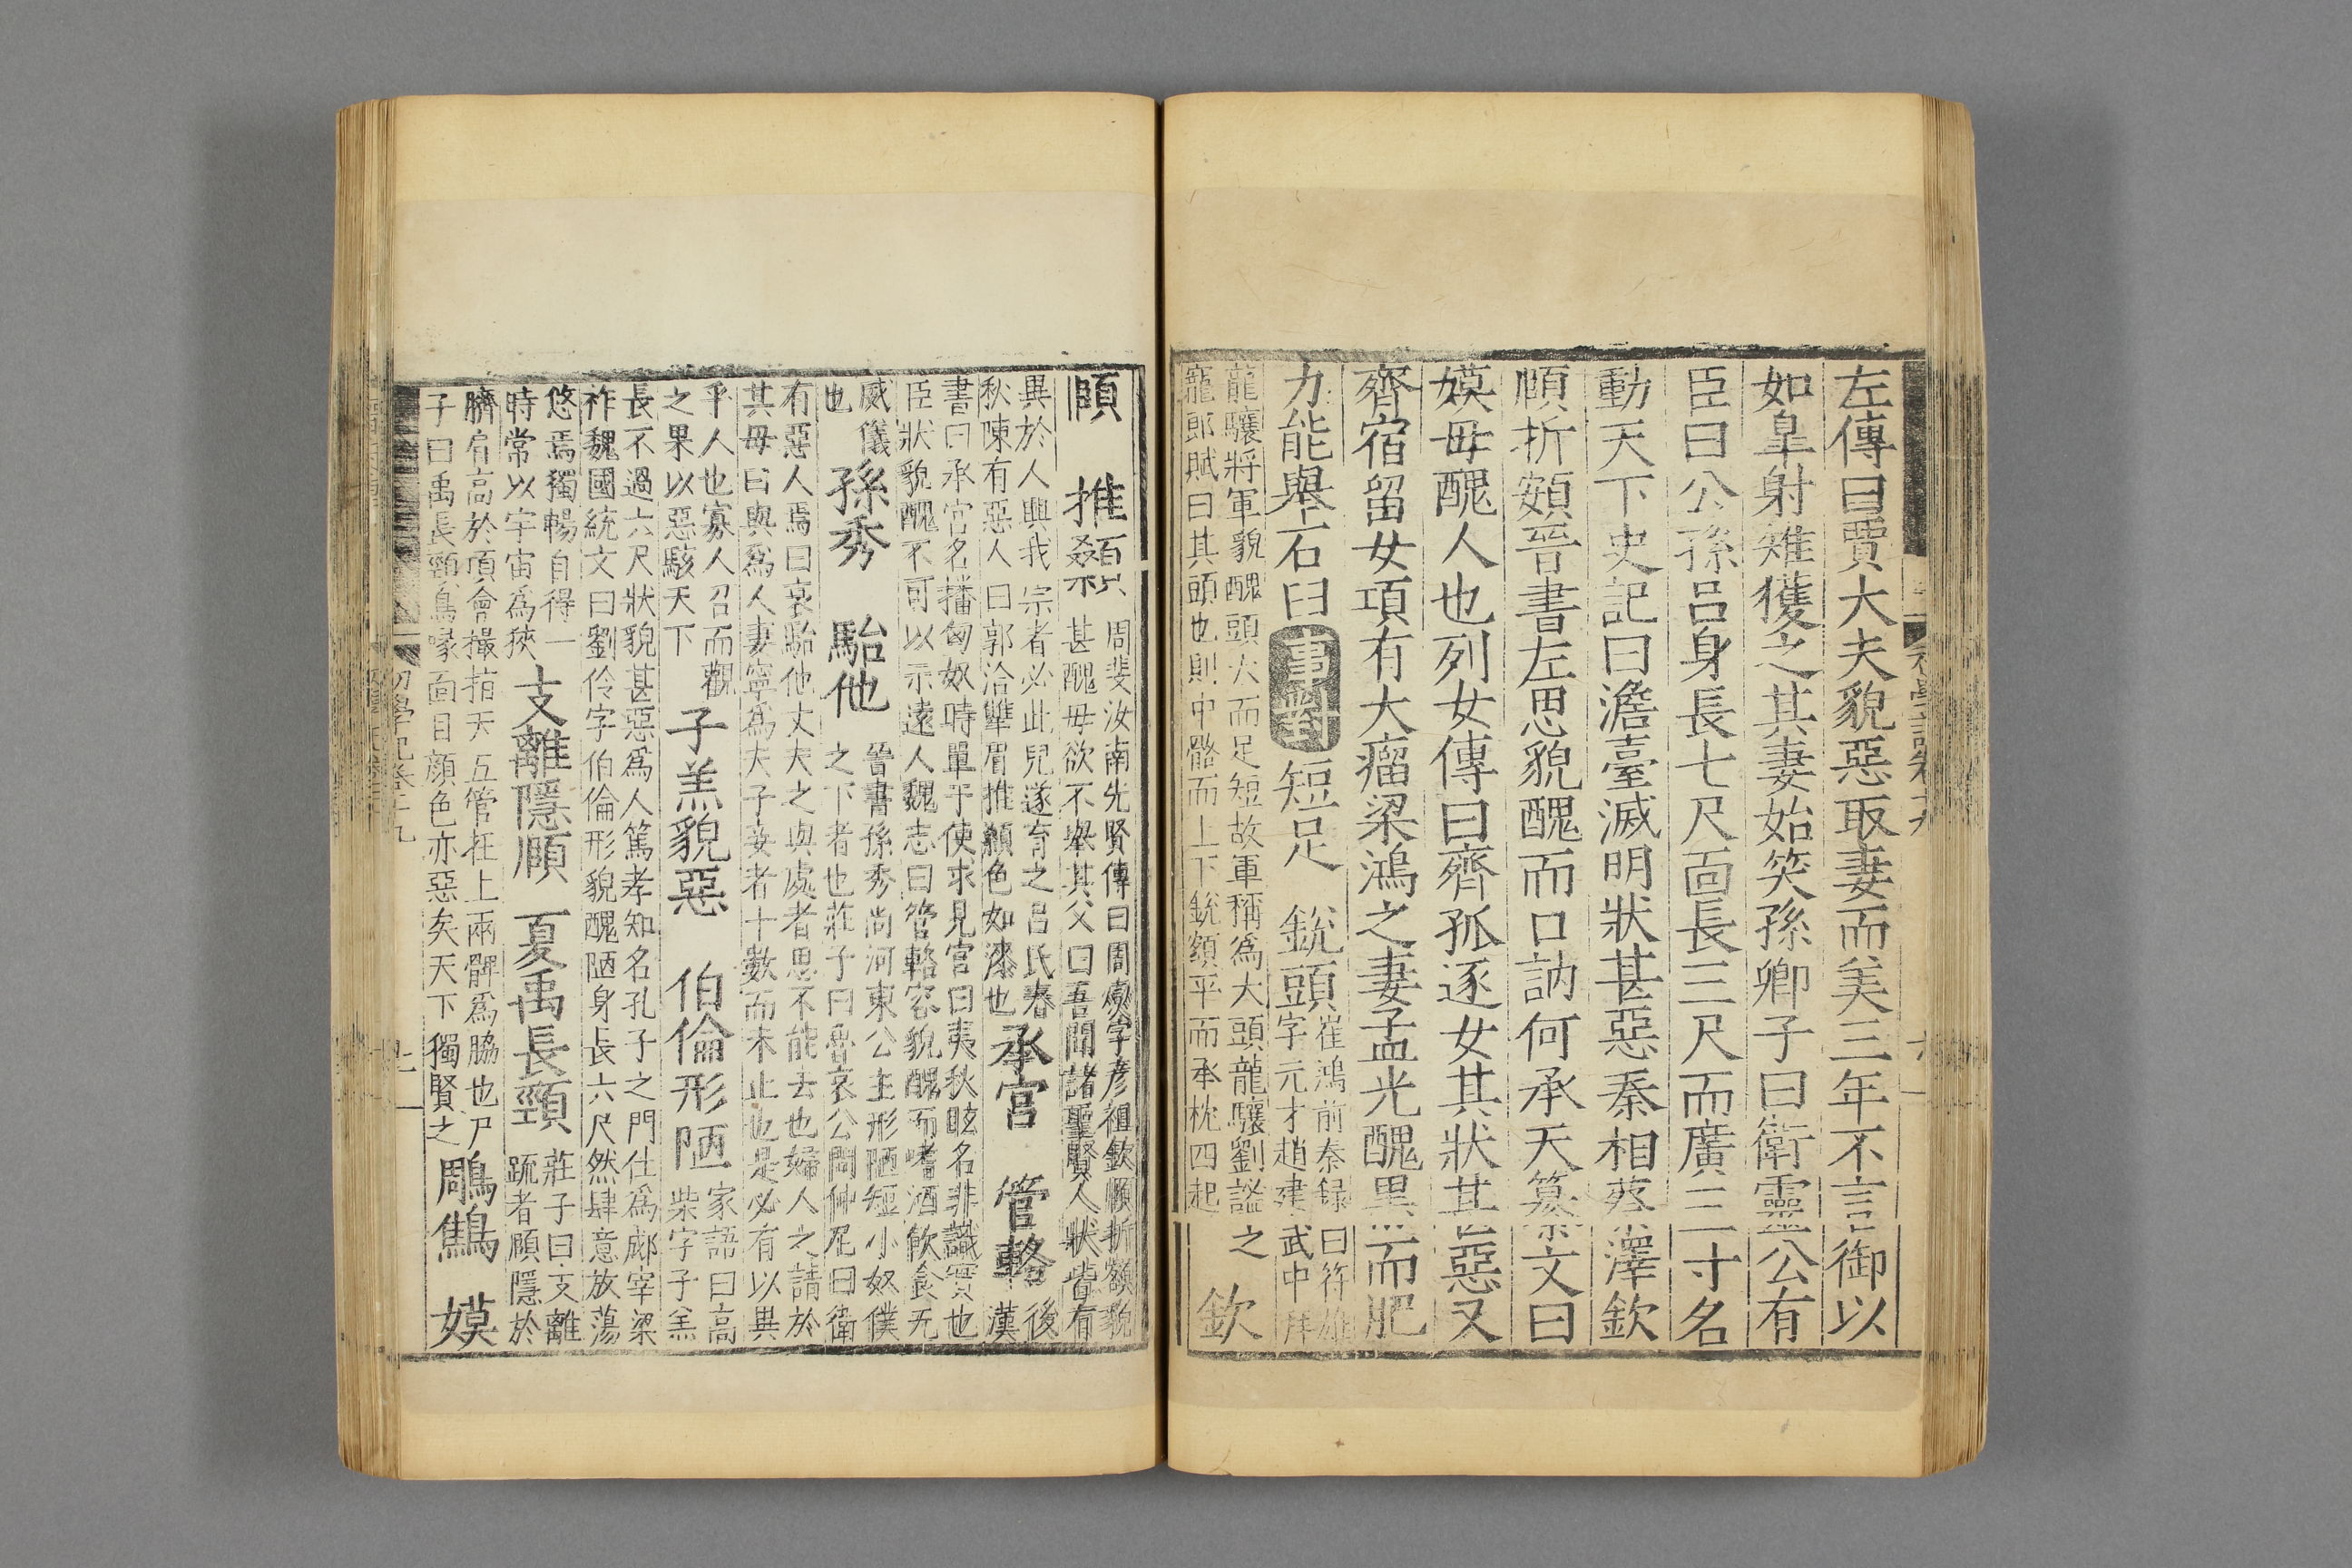 左傳曰賈大夫貌惡取妻而美三年不言御以
如皐射雉獲之其妻始笑孫卿子曰衛靈公有
臣曰公孫呂身長七尺面長三尺而廣三寸名
動天下史記曰澹臺滅明狀甚惡秦相蔡澤欽
頤折頞晉書左思貌醜而口訥何承天纂文曰
嫫母醜人也列女傳曰齊孤逐女其狀甚惡又
齊宿留女項有大瘤梁鴻之妻孟光醜黑而肥
力能舉石臼 事對 短足 銳頭 崔鴻前秦録曰符雄
字元才趙建武中拜
龍驤將軍貌醜頭大而足短故軍稱爲大頭龍驤劉謐之
寵郎賦曰其頭也則中骼而上下銳頟平而承枕四起 欽
頤 推顙 周斐汝南先賢傳曰周爕字彦祖欽頤折頞貌
甚醜母欲不舉其父曰吾聞諸聖賢人狀皆有
異於人興我宗者必此兒遂育之呂氏春
秋陳有惡人曰郭洽雙眉推顙色如漆也 承宫 管輅 後
漢
書曰承宫名播匈奴時單于使求見宫曰夷秋眩名非識實也
臣狀貌醜不可以示遠人魏志曰管輅容貌醜而嗜酒飲食无
威儀
也 孫秀 駘他 晉書孫秀尚河東公主形陋短小奴僕
之下者也莊子曰魯哀公問仲尼曰衛
有惡人焉曰哀駘他丈夫之與處者思不能去也婦人之請於
其母曰與爲人妻寧爲夫子妾者十數而未止也是必有以異
乎人也寡人召而觀
之果以惡駭天下 子羔貌惡 伯倫形陋 家語曰高
柴字子羔
長不過六尺狀貌甚惡爲人篤孝知名孔子之門仕爲郕宰梁
祚魏國統文曰劉伶字伯倫形貌醜陋身長六尺然肆意放蕩
悠焉獨暢自得一
時常以宇宙爲狹 支離隱頤 夏禹長頸 莊子曰支離
䟽者頤隱於
臍肩高於項會撮指天五管在上兩髀爲脇也尸
子曰禹長頸鳥喙面目顔色亦惡矣天下獨賢之 鵰鷦 嫫
初學記卷十九